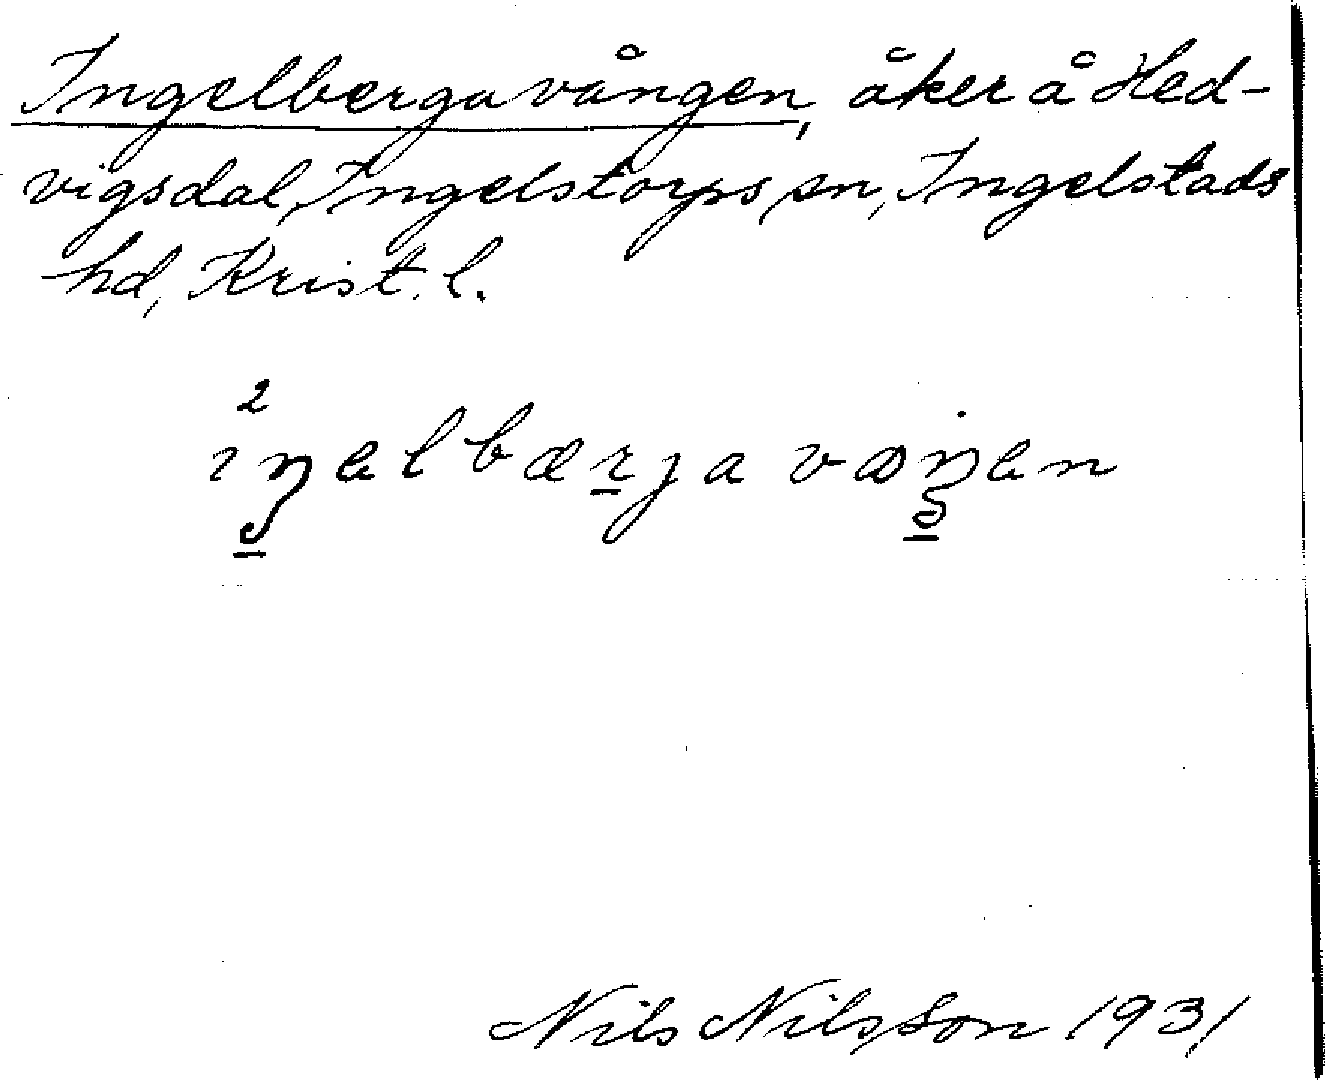 Ingelbergavången, åker å Hed-
vigsdal, Ingelstorps sn, Ingelstads
hd, Krist. l.
2
iŋelbærja væŋen
Nils Nilsson 1931